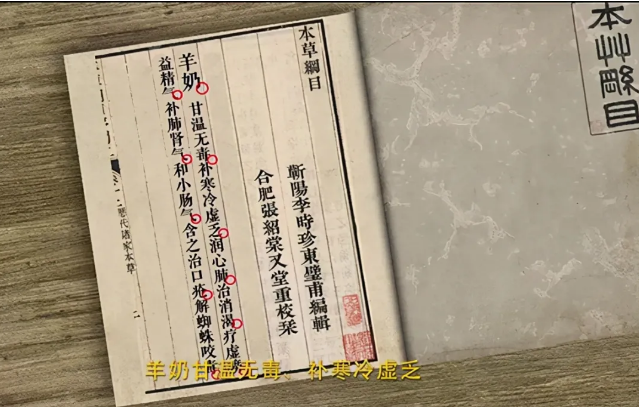 本艸綱目
本草綱目
蘄陽李時珍東璧甫編輯
合肥張紹棠又堂重校栞
羊奶 甘温无毒补寒冷虚乏润心肺治消渴疗虚
益精气补肺肾气和小肠气含之治口疮解蜘蛛咬
歷代諸家本草
二
羊奶甘温无毒、补寒冷虚乏